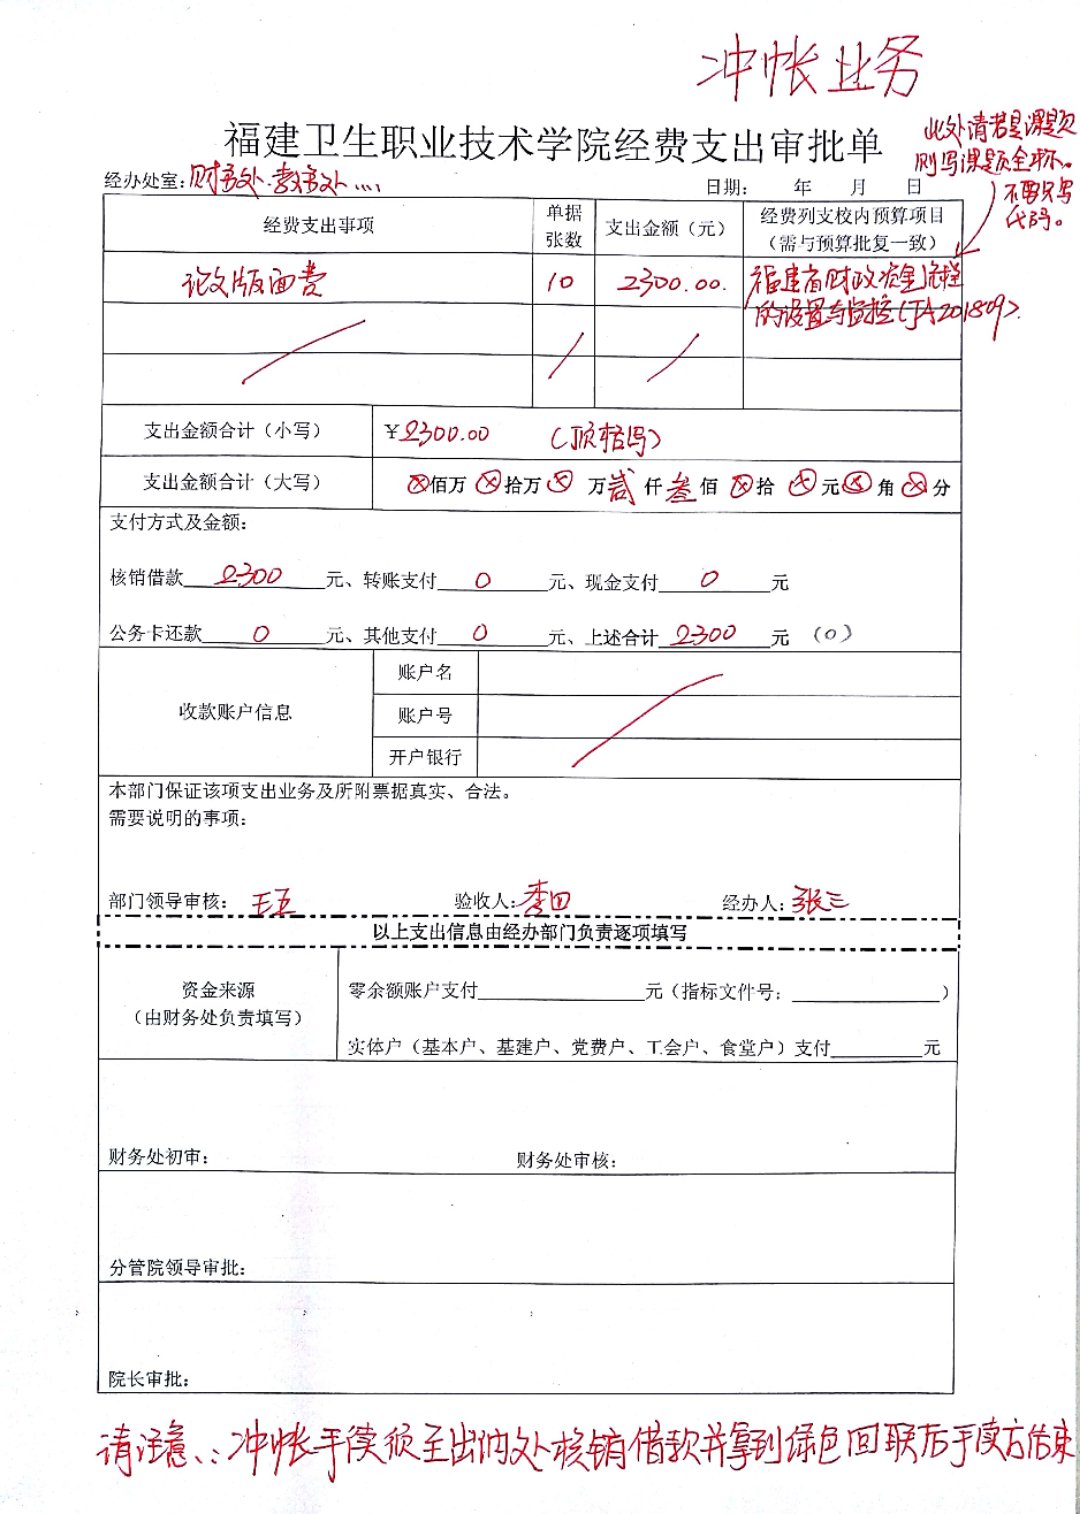 冲帐业务
福建卫生职业技术学院经费支出审批单
此处请若是课题
则写课题全称。
不要只写
代码。
经办处室:财务处.教务处....
日期: 年 月 日
经费支出事项 单据张数 支出金额（元） 经费列支校内预算项目（需与预算批复一致）
论文版面费 10 2300.00. 福建省财政资金流程
的设置与监控(JA201809).
支出金额合计（小写） ¥2300.00 (顶格写)
支出金额合计（大写） ⊗佰万⊗拾万⊗万贰仟叁佰⊗拾⊗元⊗角⊗分
支付方式及金额:
核销借款2300元、转账支付0元、现金支付0元
公务卡还款0元、其他支付0元、上述合计2300元 (0)
收款账户信息
账户名
账户号
开户银行
本部门保证该项支出业务及所附票据真实、合法。
需要说明的事项:
部门领导审核: 王五 验收人:李四 经办人:张三
以上支出信息由经办部门负责逐项填写
资金来源
（由财务处负责填写）
零余额账户支付______元（指标文件号:______）
实体户（基本户、基建户、党费户、工会户、食堂户）支付______元
财务处初审: 财务处审核:
分管院领导审批:
院长审批:
请注意:冲帐手续须至出纳处核销借款并拿到绿色回联后手续方结束